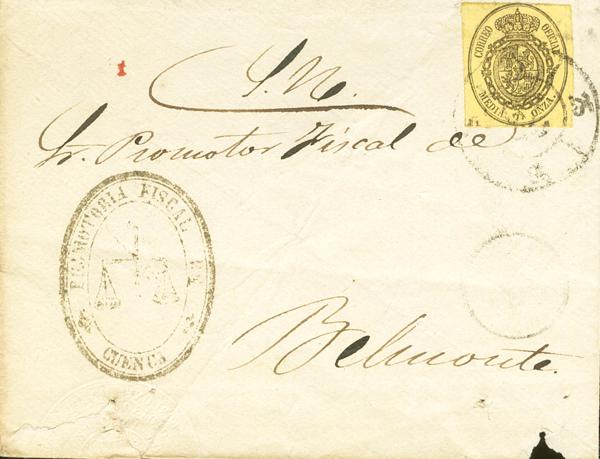 CORREO OFICIAL
MEDIA ONZA
S. N.
Sr. Promotor Fiscal de
PROMOTORIA FISCAL DE
CUENCA
Belmonte.